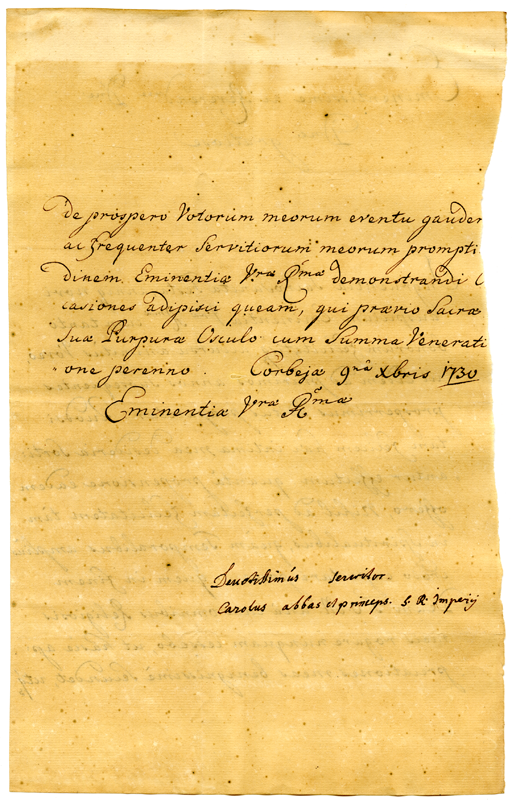 De prospero Votorum meorum eventu gauder
ac frequenter Servitiorum meorum prompti
dinem Eminentiæ Vræ Rmæ demonstrandi O
casiones adipisci queam, qui prævio Sacræ
Suæ Purpuræ Osculo cum Summa Venerati
one perenno. Corbejæ 9na Xbris 1730
Eminentiæ Vræ Rmæ
Devotissimus servitor
Carolus abbas et princeps. S. R. Imperij